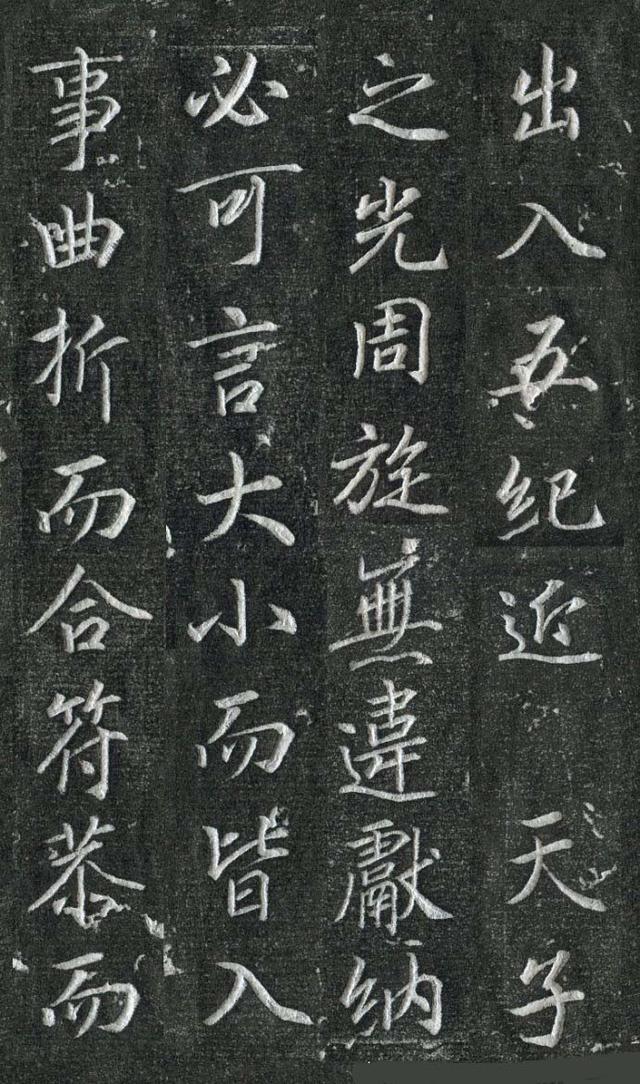 出入五紀近天子
之光周旋無違獻納
必可言大小而皆入
事曲折而合符恭而